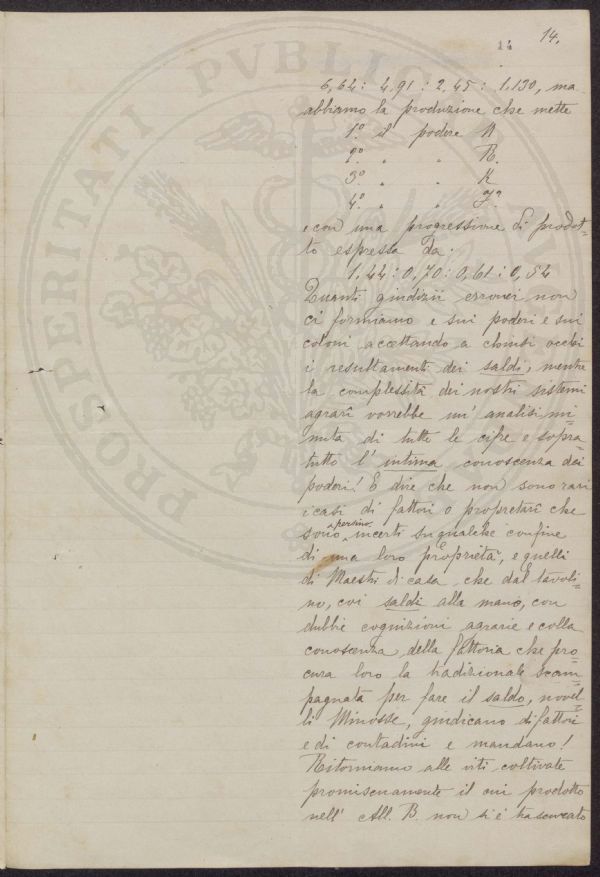 14.
14
6,64 : 4,91 : 2,45 : 1,130, ma
abbiamo la produzione che mette
1º il podere N
2º " " R.
3º " " K
4º " " J.
e con una progressione di prodot=
to espressa da:
1,44 : 0,70 : 0,61 : 0,54
Quanti giudizii erronei non
ci formiamo e sui poderi e sui
coloni accettando a chiusi occhi
i resultamenti dei saldi, mentre
la complessità dei nostri sistemi
agrari vorrebbe un' analisi mi=
nuta di tutte le cifre e sopra=
tutto l' intima conoscenza dei
poderi! E dire che non sono rari
i casi di fattori o proprietari che
sono persino incerti su qualche confine
di una loro Proprietà, e quelli
di Maestri di casa che dal tavoli=
no, coi saldi alla mano, con
dubbie cognizioni agrarie e colla
conoscenza della fattoria che pro=
cura loro la tradizionale scam=
pagnata per fare il saldo, novel=
li Minosse, giudicano di fattori
e di contadini e mandano!
Ritorniamo alle viti coltivate
promiscuamente il cui prodotto
nell' All. B. non si è trascurato
PROSPERITATI PVBLICAE